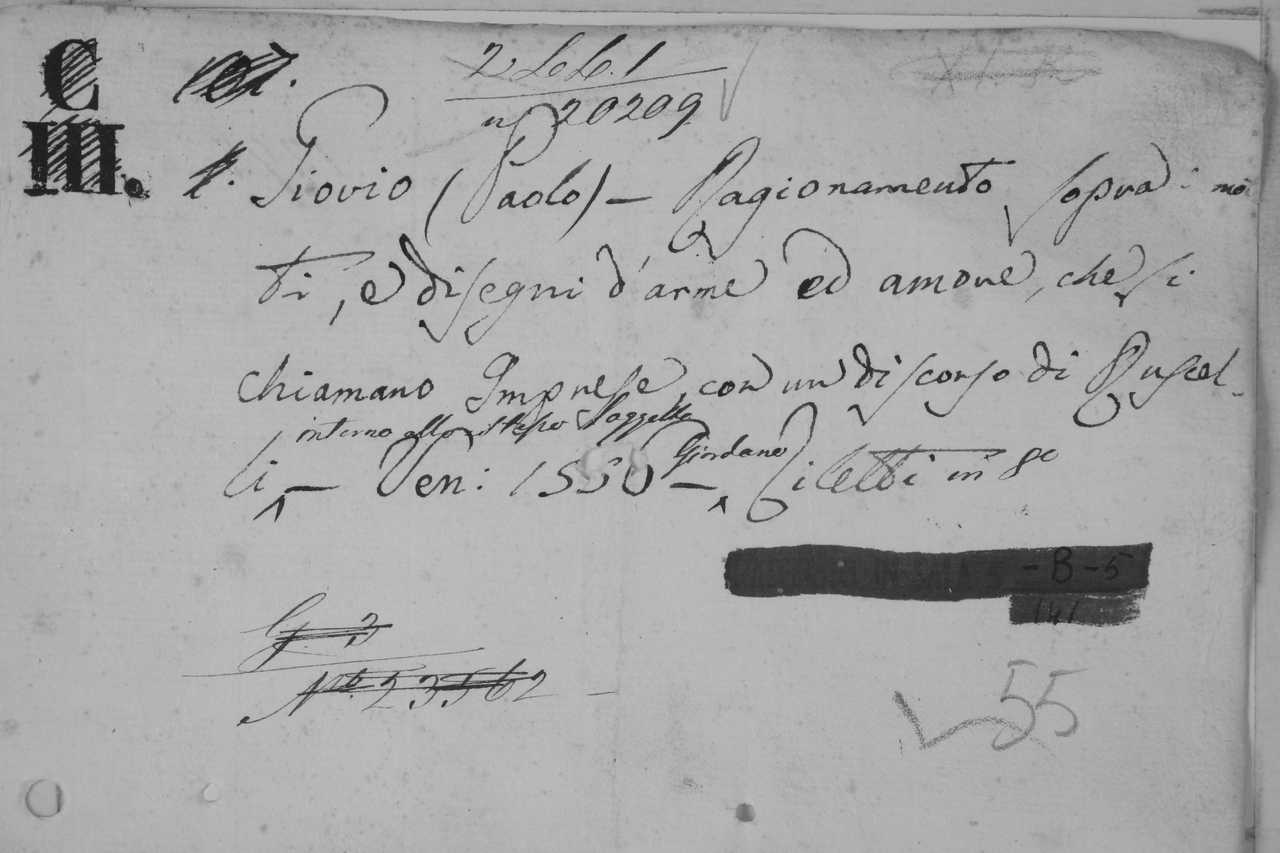 C
III.
n. 20209
Giovio (Paolo) — Ragionamento sopra i mo
ti, e disegni d'arme ed amore, che si
chiamano Imprese, con un discorso di Ruscel-
intorno allo stesso Soggetto
li — Ven: 1550 — Giordano Ziletti in 8º
- B - 5
141
G. 3
Nº 23562
55